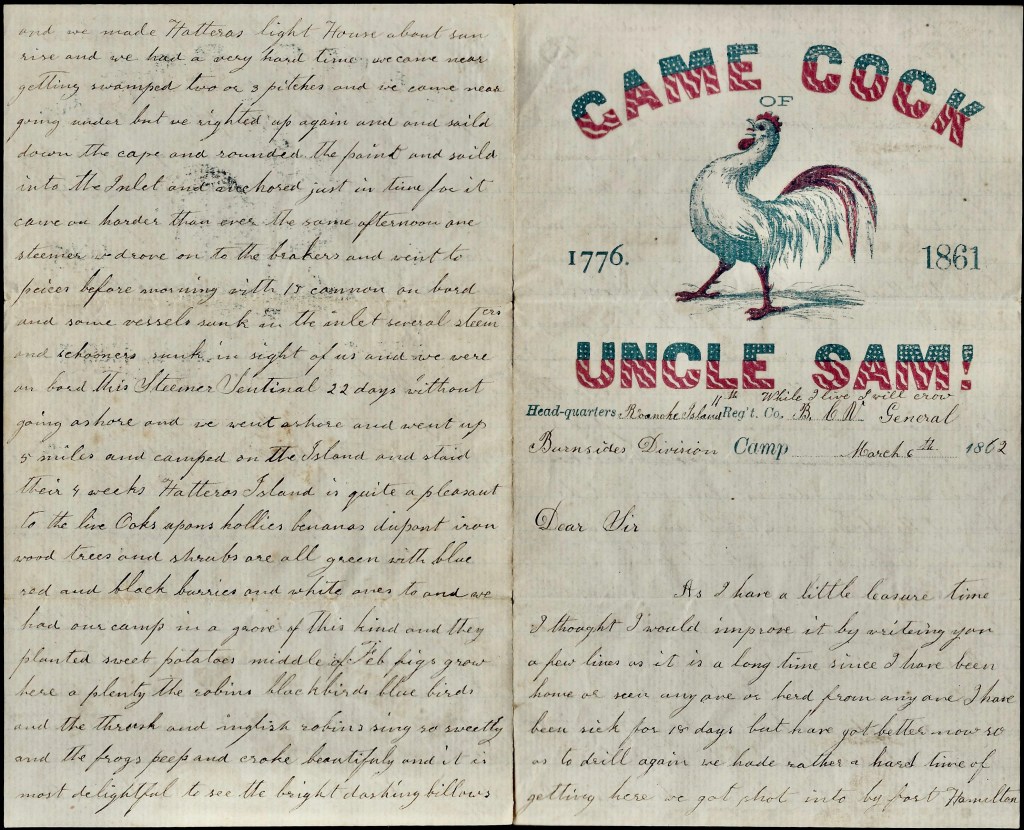 GAME COCK
OF
1776. 1861
UNCLE SAM!
While I live I will crow
Head-quarters Roanoke Island 11th Reg't. Co. B. C. V. General
Burnsides Division Camp March 6th 1862
Dear Sir
As I have a little leasure time
I thought I would improve it by writeing you
a few lines as it is a long time since I have been
home or seen any one or herd from any one I have
been sick for 18 days but have got better now so
as to drill again we hade rather a hard time of
getting here we got shot into by fort Hamilton
and we made Hatteras light House about sun
rise and we had a very hard time we came near
getting swamped two or 3 pitches and we came near
going under but we righted up again and and saild
down the cape and rounded the point and saild
into the Inlet and anchored just in time for it
came on harder than ever the same afternoon one
steemer drove on to the brakers and went to
peices before morning with 15 cannon on bord
and some vessels sunk in the inlet several steemers
and schooners sunk in sight of us and we were
on bord this Steemer Sentinal 22 days without
going ashore and we went ashore and went up
5 miles and camped on the Island and staid
their 4 weeks Hatteras Island is quite a pleasant
to the live Oaks apons hollies bananas dupont iron
wood trees and shrubs are all green with blue
red and black burries and white ones to and we
had our camp in a grove of this kind and they
planted sweet potatoes middle of Feb figs grow
here a plenty the robins blackbirds blue birds
and the thrush and inglish robins sing so sweetly
and the frogs peep and croke beautifuly and it is
most delightful to see the bright dashing billows